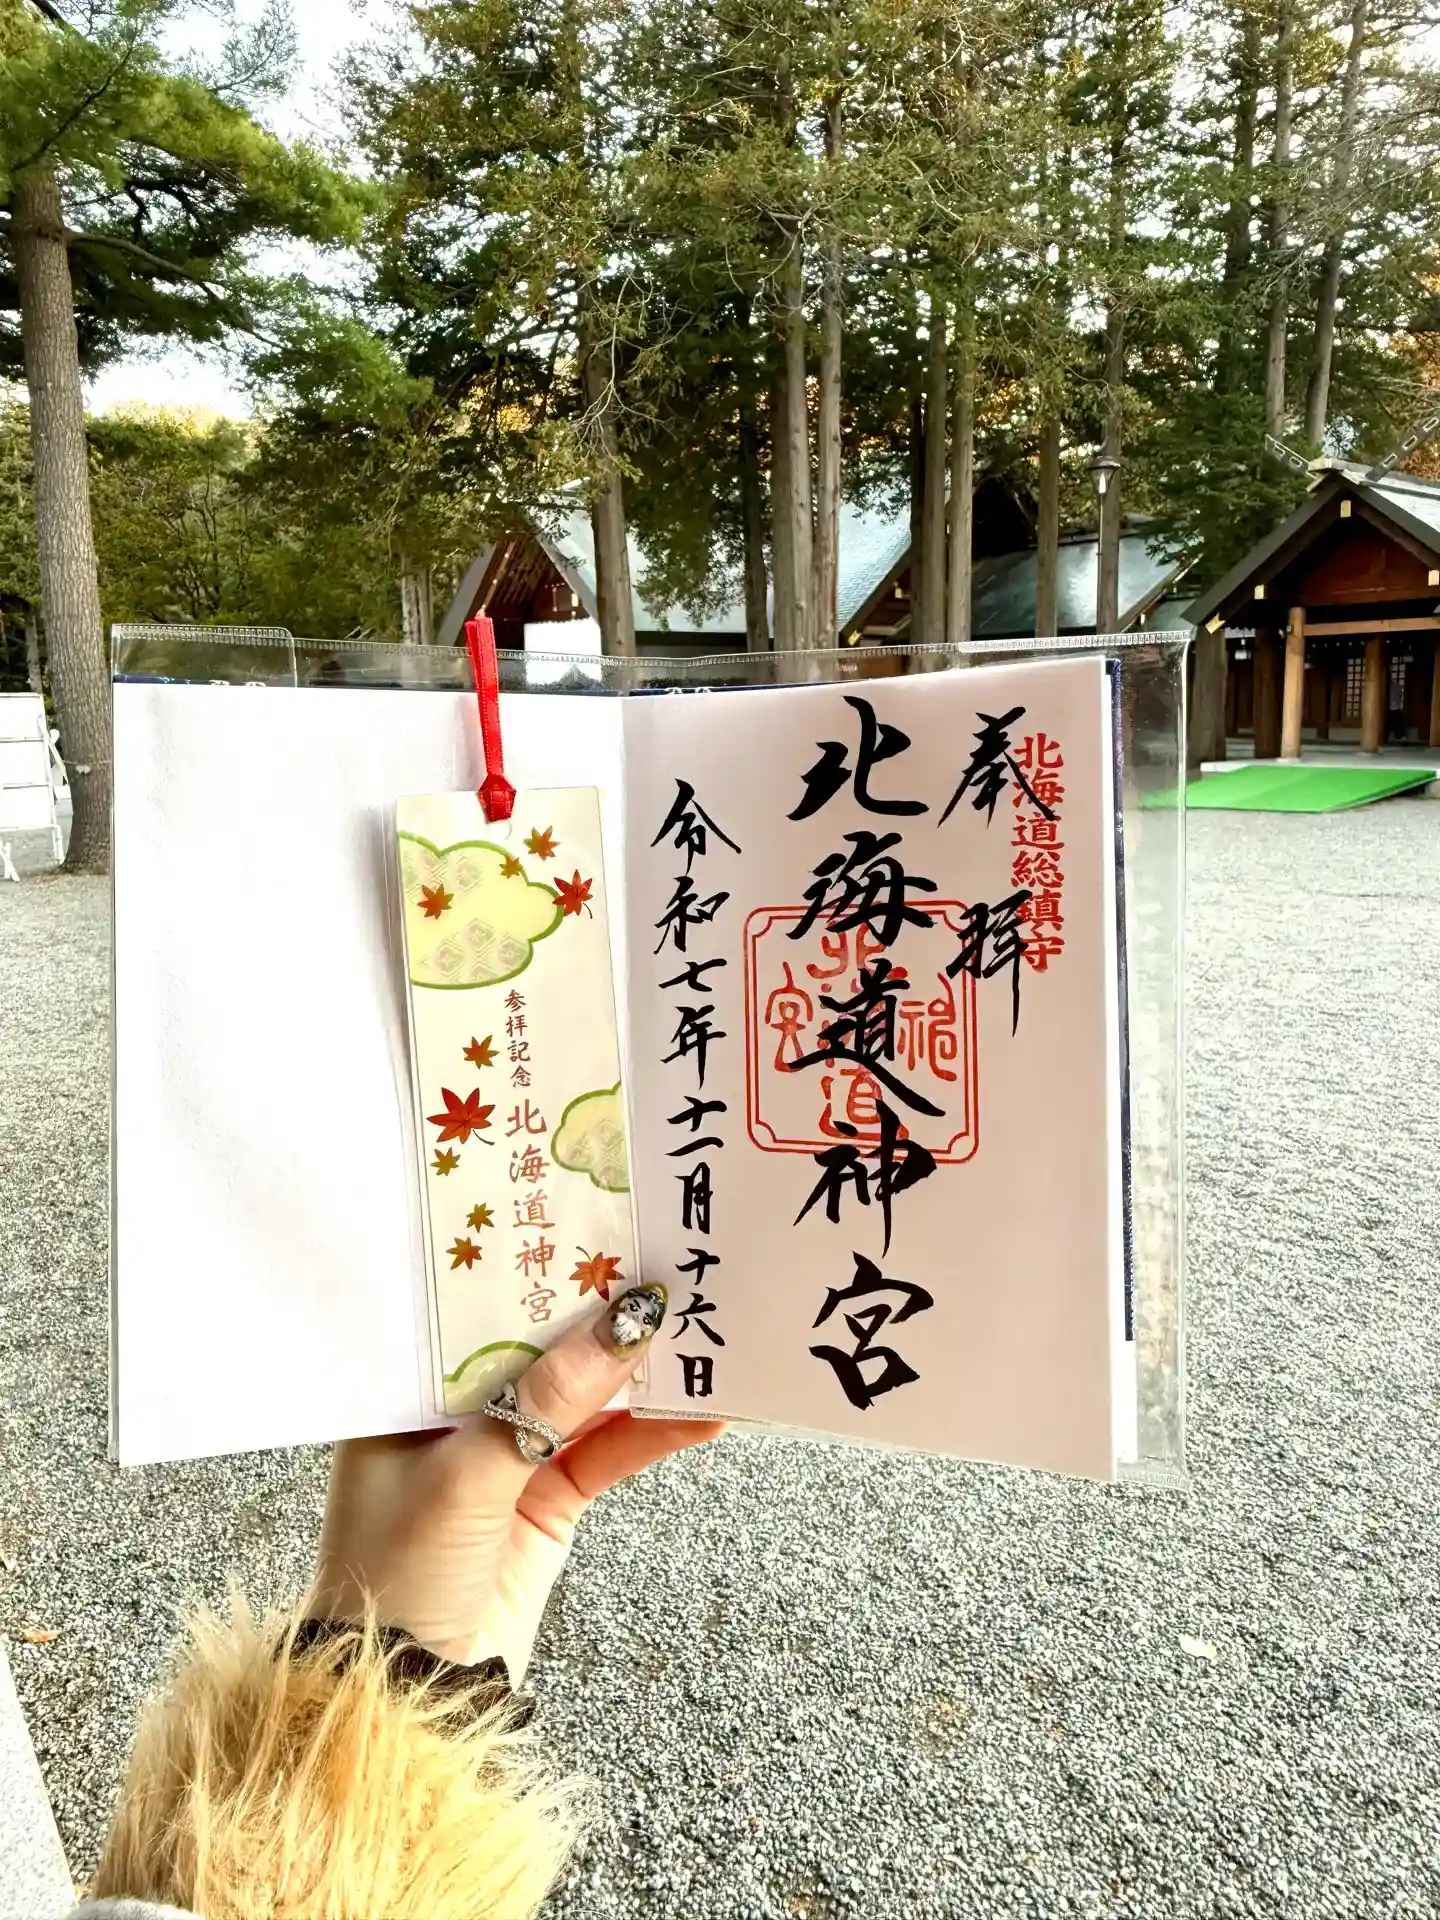 北海道総鎮守
奉拝
北海道神宮
令和七年十一月十六日
参拝記念
北海道神宮